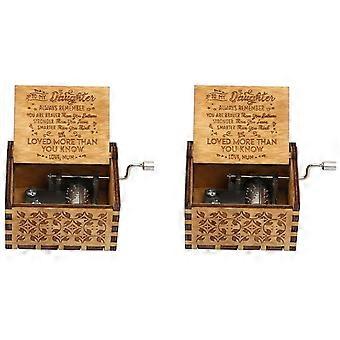 TO MY Daughter
ALWAYS REMEMBER
YOU ARE BRAVER Than You Believe
STRONGER Than You Seem
SMARTER Than You Think
LOVED MORE THAN
YOU KNOW
LOVE, MUM
TO MY Daughter
ALWAYS REMEMBER
YOU ARE BRAVER Than You Believe
STRONGER Than You Seem
SMARTER Than You Think
LOVED MORE THAN
YOU KNOW
LOVE, MUM